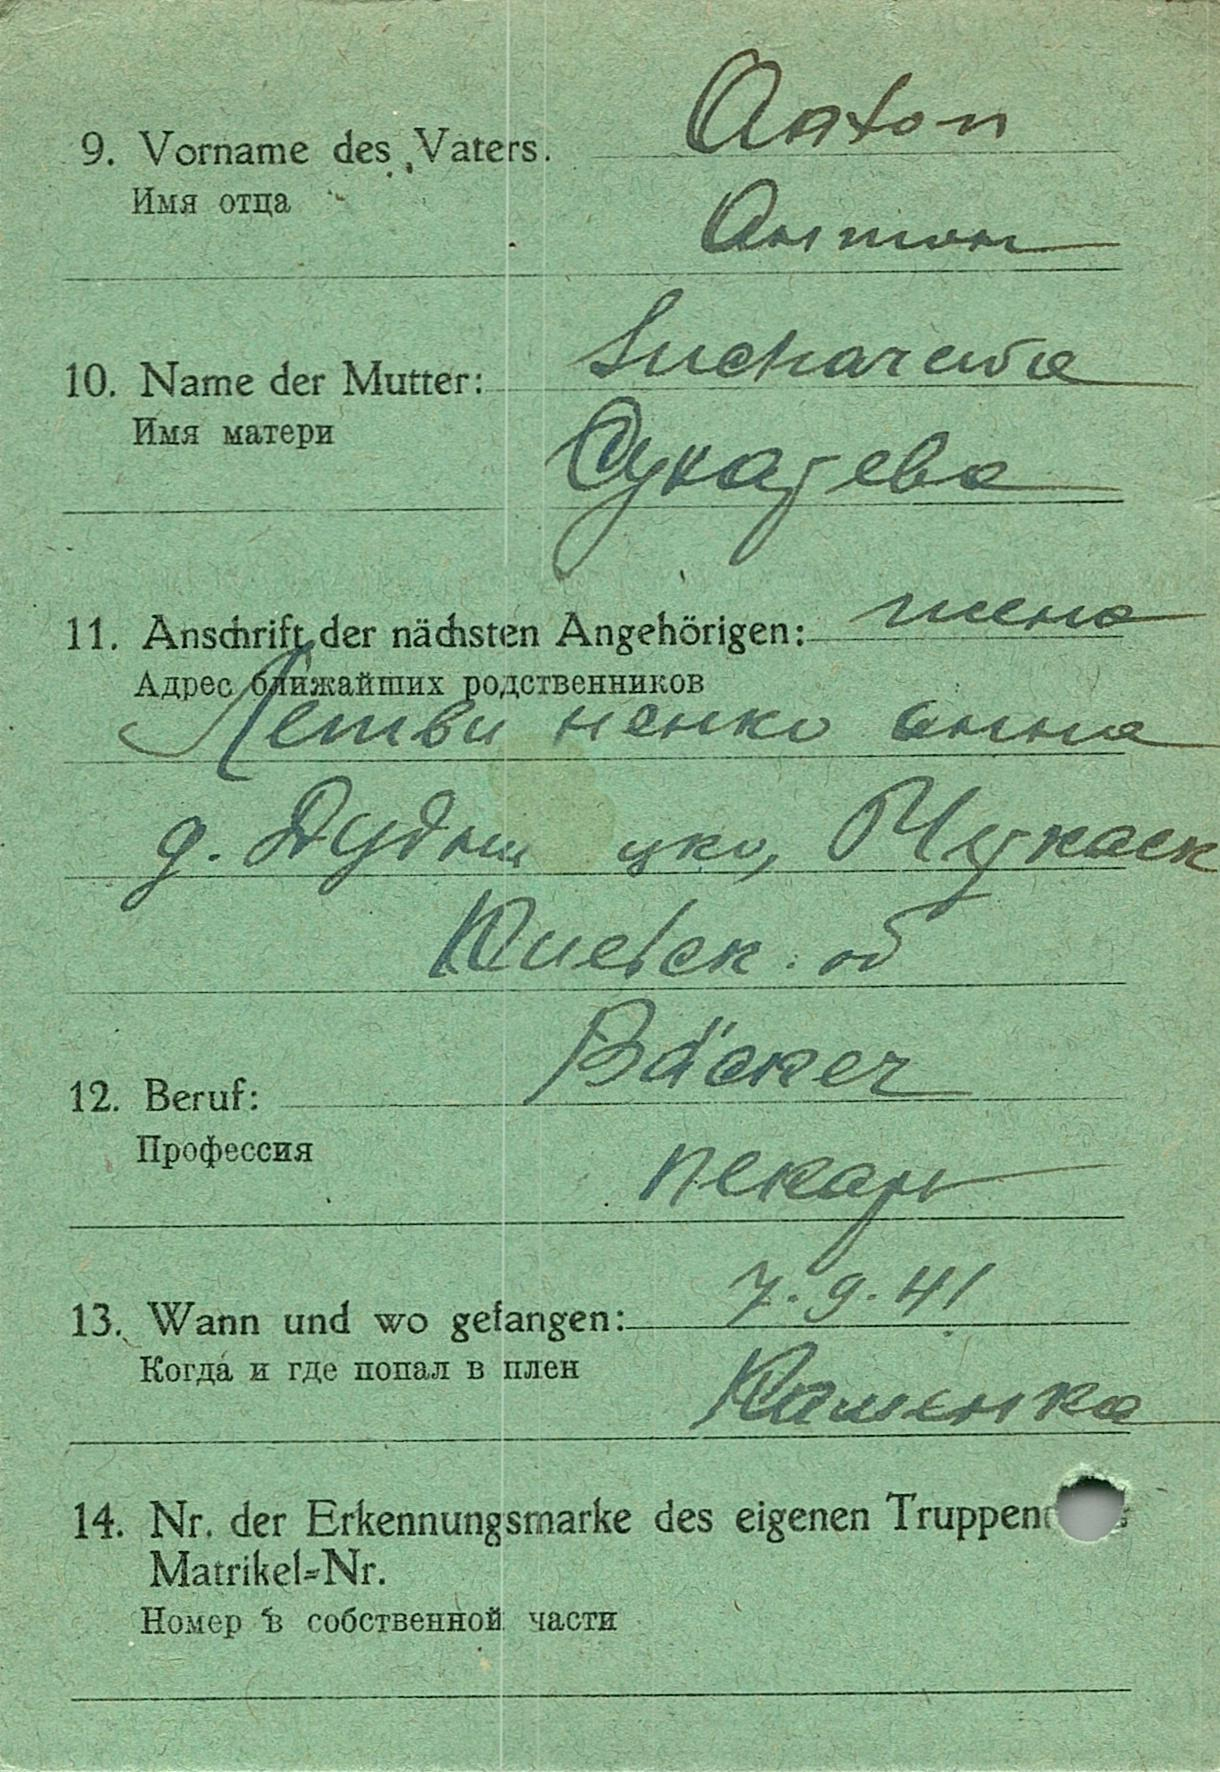 9. Vorname des Vaters. Anton
Имя отца Антон
10. Name der Mutter: Sucharewa
Имя матери Сухарева
11. Anschrift der nächsten Angehörigen: жена
Адрес ближайших родственников
Летвиненко анна
д.
Киевск. об
12. Beruf: Bäcker
Профессия пекарь
13. Wann und wo gefangen: 7.9.41
Когда и где попал в плен Каменка
14. Nr. der Erkennungsmarke des eigenen
Matrikel=Nr.
Номер в собственной части